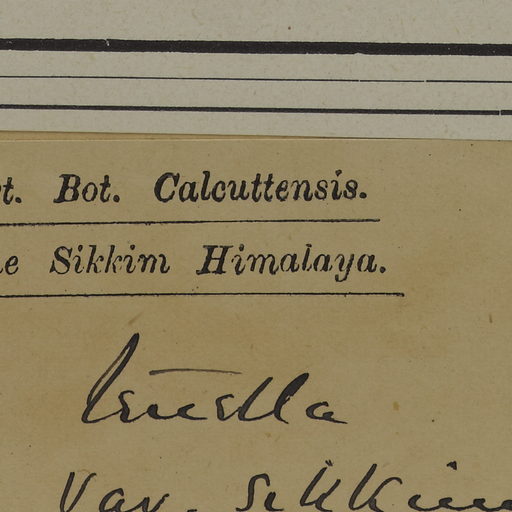 t. Bot. Calcuttensis.
e Sikkim Himalaya.
var. sikkim